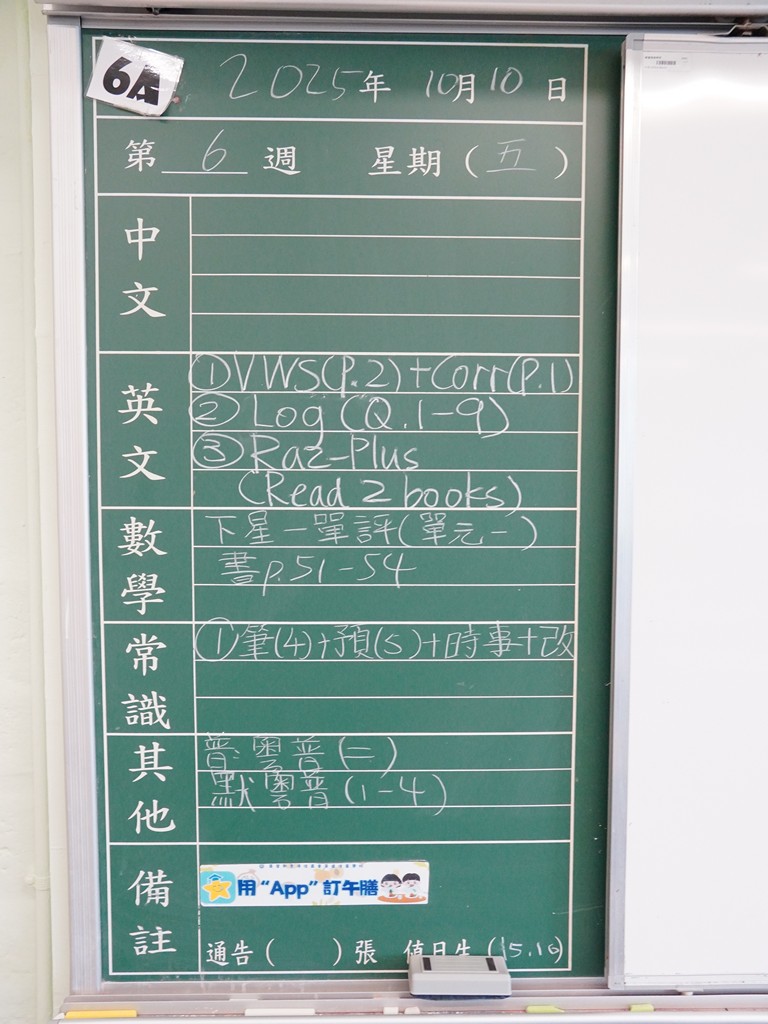 6A
2025年 10月10日
第 6 週 星期(五)
中文
英文
①VWS(P.2)+Corr(P.1)
②Log(Q.1-9)
③Raz-Plus
(Read 2 books)
數學
下星一單評(單元一)
書p.51-54
常識
①筆(4)+預(5)+時事+改
其他
普:粵普(二)
默粵普(1-4)
備註
用“App”訂午膳
通告( )張 值日生(15.16)